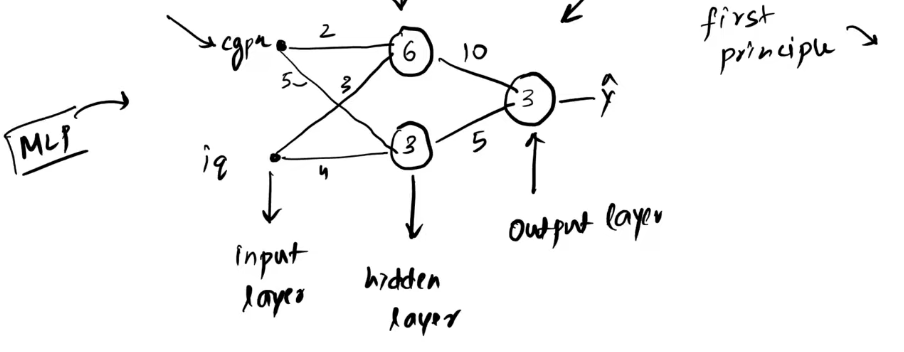 first
principle
cgpa
2
6
10
5
3
3
ŷ
MLP
iq
4
3
5
input
layer
hidden
layer
output layer